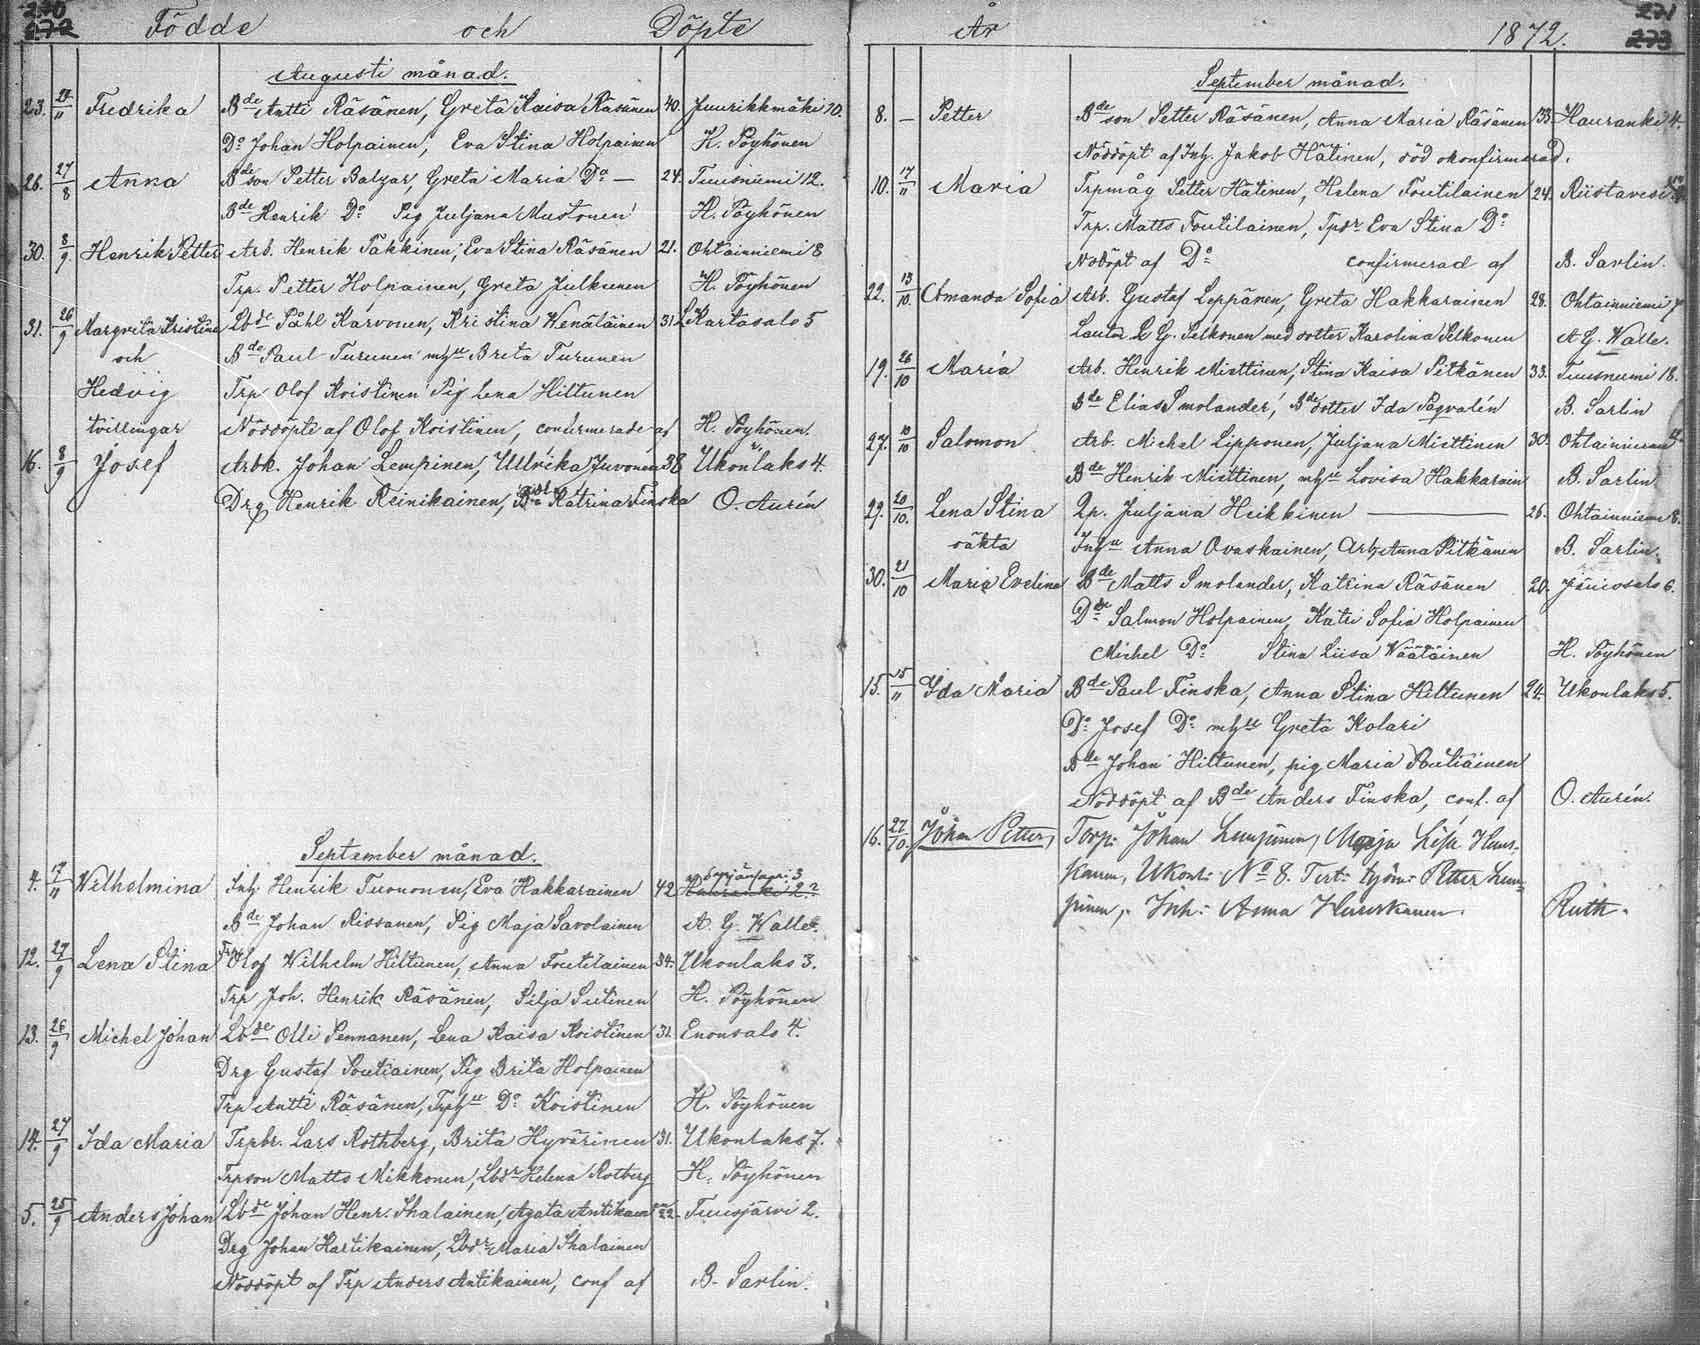 270
272
Födde och Döpte
Augusti månad.
23. 24/11 Fredrika Bde Antti Räsänen, Greta Kaisa Räsänen 40. Juurikkmäki 10.
Do Johan Holpainen, Eva Stina Holpainen H. Pöyhönen
26. 27/8 Anna Bdeson Petter Balzar, Greta Maria Do — 24. Tuusniemi 12.
Bde Henrik Do Pig Juljana Mustonen H. Pöyhönen
30. 8/9. Henrik Petter Arb. Henrik Pakkinen, Eva Stina Räsänen 21. Ohtainniemi 8
Trp. Petter Holpainen, Greta Julkunen H. Pöyhönen
31. 26/9 Margreta Kristina Lbde Påhl Karvonen, Kristina Wenäläinen 31. Kartasalo 5
och Bde Paul Turunen mhu Brita Turunen
Hedvig Trp Olof Koistinen Pig Lena Hiltunen
tvillingar Nöddöpte af Olof Koistinen, confirmerade af H. Pöyhönen.
16. 8/9 Josef Arbk. Johan Lempinen, Ullrika Juvonen 38 Ukonlaks 4.
Drg Henrik Reinikainen, Katrina Finska O. Aurén
September månad.
4. 17/11 Wilhelmina Inh. Henrik Tuononen, Eva Hakkarainen 42
Bde Johan Rissanen, Pig Maja Savolainen A. G. Walle.
12. 27/9 Lena Stina Trp Olof Wilhelm Hiltunen, Anna Poutilainen 34. Ukonlaks 3.
Trp Joh. Henrik Räsänen, Silja Sutinen H. Pöyhönen
13. 26/9 Michel Johan Lbde Olli Pennanen, Lena Kaisa Koistinen 31. Enonsalo 4.
Drg Gustaf Poutiainen, Pig Brita Holpainen
Trp Antti Räsänen, Trphu Do Koistinen H. Pöyhönen
14. 27/9 Ida Maria Trpbr. Lars Rothberg, Brita Hyvärinen 31. Ukonlaks 7.
Trpson Matts Mikkonen, Lbdr Helena Rotberg H. Pöyhönen
5. 25/9 Anders Johan Lbde Johan Henr. Ihalainen, Agata Antikainen 22. Tuusjärvi 2.
Drg Johan Hartikainen, Lbdr Maria Ihalainen
Nöddöpt af Trp Anders Antikainen, conf af B. Sarlin.
271
273
År 1872.
September månad.
8. — Petter Bdeson Petter Räsänen, Anna Maria Räsänen 33. Hauranki 4.
Nöddöpt af Inh. Jakob Hätinen, död okonfirmerad.
10. 17/11 Maria Trpmåg Petter Hätinen, Helena Poutilainen 24. Riistavesi
Trp. Matts Poutilainen, Tpdr Eva Stina Do
Nödöpt af Do confirmerad af B. Sarlin.
22. 13/10. Amanda Sofia Arb. Gustaf Leppänen, Greta Hakkarainen 28. Ohtainniemi 7
G. Pelkonen med dotter Karolina Pelkonen A G. Walle.
19. 26/10 Maria Arb. Henrik Miettinen, Stina Kaisa Pitkänen 33. Tuusniemi 18.
Bde Elias Smolander, Bdedotter Ida Pagvalén B. Sarlin
27. 10/10 Salomon Arb. Michel Lipponen, Juljana Miettinen 30. Ohtainniemi
Bde Henrik Miettinen, mhu Lovisa Hakkarain B. Sarlin.
29. 20/10. Lena Stina Qp. Juljana Heikkinen — 26. Ohtainniemi 8.
oäkta Inhu Anna Ovaskainen, Arb. Anna Pitkänen B. Sarlin.
30. 21/10 Maria Evelina Bde Matts Smolander, Katrina Räsänen 20. Jänissalo 6.
Do Salmon Holpainen, Katri Sofia Holpainen
Michel Do Stina Liisa Wäätäinen H. Pöyhönen
15. 15/11 Ida Maria Bde Paul Finska, Anna Stina Hiltunen 24. Ukonlaks 5.
Do Josef Do mhu Greta Kolari
Bde Johan Hiltunen, pig Maria Poutiainen
Nöddöpt af Bde Anders Finska, conf. af O. Aurén.
16. 27/10. Johan Petter, Torp. Johan Lempinen, Maja Lisa Hens-
kanen, Ukonl. No 8. Test: Petter Lem-
pinen, Inh: Anna Henskanen. Ruth.